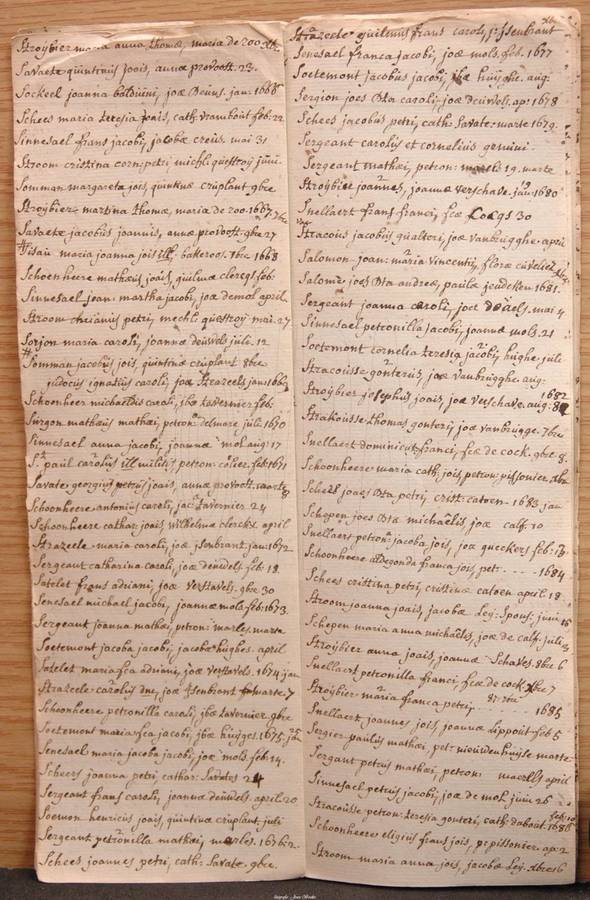 Stroÿbier maria anna thomæ, maria de zoo
Savaete quintinus jois, annæ provoost. 23.
Sockeel joanna balduini, joæ Deūns. jan: 1668
Schees maria teresia jois, cath: vrambout feb: 22
Sinnesael frans jacobi, jacobæ creūs. mai 31
Stroom cristina corn: petri, michl: questroÿ jūni.
Somman margareta jois, quintinæ crūplant 9bre
Stroÿbier martina thomæ, maria de zoo. 1667
Savaete jacobus joannis, annæ provoost. 9bre 27
maria joanna jois ill. bakeroos. 1bre 1668
Schoenheere mathæus joais, guilmæ clercqs feb:
Sinnesael joan: martha jacobi, joæ de mol april.
Stroom petri, mechl: questroÿ mai. 27
Sorjon maria caroli, joannæ deūwels julii. 12
Somman jacobus jois, quintinæ crūplant 8bre
judocus ignatius caroli, joæ Strazeels jan: 166
Schoonheer michaelis caroli, jbæ tavernier feb:
Surgon mathæus mathæi, petron: delmare julii 1670
Sinnesael anna jacobi, joannæ mol. aug: 17
St. paul carolus ill militis petron: colier. feb: 1671
Savate georgius petrus joais, annæ provoost. maarte
Schoonheere antonius caroli, jac: Tavernier 24
Schoonheere cathar: joais, wilhelmæ clerckx. april
Strazeele maria caroli, joæ jsenbrant. jan: 1672
Sergeant catharina caroli, joæ deuwels feb: 18.
Satelet frans adriani, joæ verstavels. 9bre 30
Senesael michael jacobi, joannæ mols. feb: 1673.
Sergeant joanna mathæi, petron: marles. marta
Soetemont jacoba jacobi, jacobæ hughes. april
Satelet maria fca adriani, joæ verstavels. 1674 jan
Strazeele carolus dni, joæ jsenbrant marte. 7
Schoonheere petronilla caroli, jbæ tavernier. 9bre
Soetemont maria fca jacobi, joæ huÿges. 1675. jan
Senesael maria jacoba jacobi, joæ mols. feb: 14.
Scheers joanna petri, cathar: Savates 24
Sergeant frans caroli, joannæ deuwels. april 20
Soemon henricus joais, quintinæ crūplant. juli
Sergeant petronilla mathæi, marles. 1676
Schees joannes petri, cath: Savate. 9bre.
Strazeele guilemus frans caroli, j: jsenbrant
Senesael franca jacobi, joæ mols. feb. 1677
Soetemont jacobus jacobi, huÿghe. aug:
Sergion joes Bta caroli, joæ deuwels. ap: 1678
Schees jacobus petri, cath: Savate. marte 1679.
Sergeant carolus et cornelius gemini.
Sergeant mathæi, petron: 19. marte
Stroÿbiet joannes, joannæ verschave. jan: 1680
Snellaert frans franci, fcæ Coegs 30
Stracous jacobus gualteri, joæ vanbrugghe. april
Salomon. joan: maria vincentii, floræ cuvelier
Salomé joes Bta andreæ, paulæ jeudcken 1681.
Sergeant joanna caroli, joæ daels. mai 4
Sinnesael petronilla jacobi, joannæ mols. 21
Soetemont cornelia teresia jacobi, hughe. julii
Stracousse gonterus, joæ vanbrugghe aug:
Stroÿbier josephus joais, joæ verschave. aug: 8 1682
Strakousse thomas gonterj, joæ vanbrugge. 7bre
Snellaert dominicus franci, fcæ de cock. 9bre. 8.
Schoonheere maria cath: jois, petron: pissonier. xbre
Scheer joaes Bta petri, crist: catoen - 1683 jan
Schepen joes Bta michaelis joæ calf. 10
Snellaert petron: jacoba jois, joæ queckers feb: 13
Schoonheere aldegonda franca jois, pet: - - - - 1684
Schees cristina petri, cristinæ catoen april 18.
Stroom joanna joais, jacobæ Leÿ: Spous. junii 16
Schepen maria anna michaelis, joæ de calf. julii
Stroÿbier anna joais, joannæ Schaves 8bre 6
Snellaert petronilla franci, fcæ de cock xbre 7
Stroÿbier maria franca petri, 8: 7bre 1685
Snellaert joannes jois, joannæ Lippout feb 5
Sergier paulus mathæi, pet: nieuwenhuÿse marte
Sergant petrus mathæi, petron: maerlls april
Sinnesael petrus jacobi, joæ de mol junii 26
Stracousse petron: teresia gonteri, cath: dabout. feb 10 1686
Schoonheere eligius frans jois, p: pissonier ap: 2
Stroom maria anna jois, jacobæ Leÿ. xbre 16